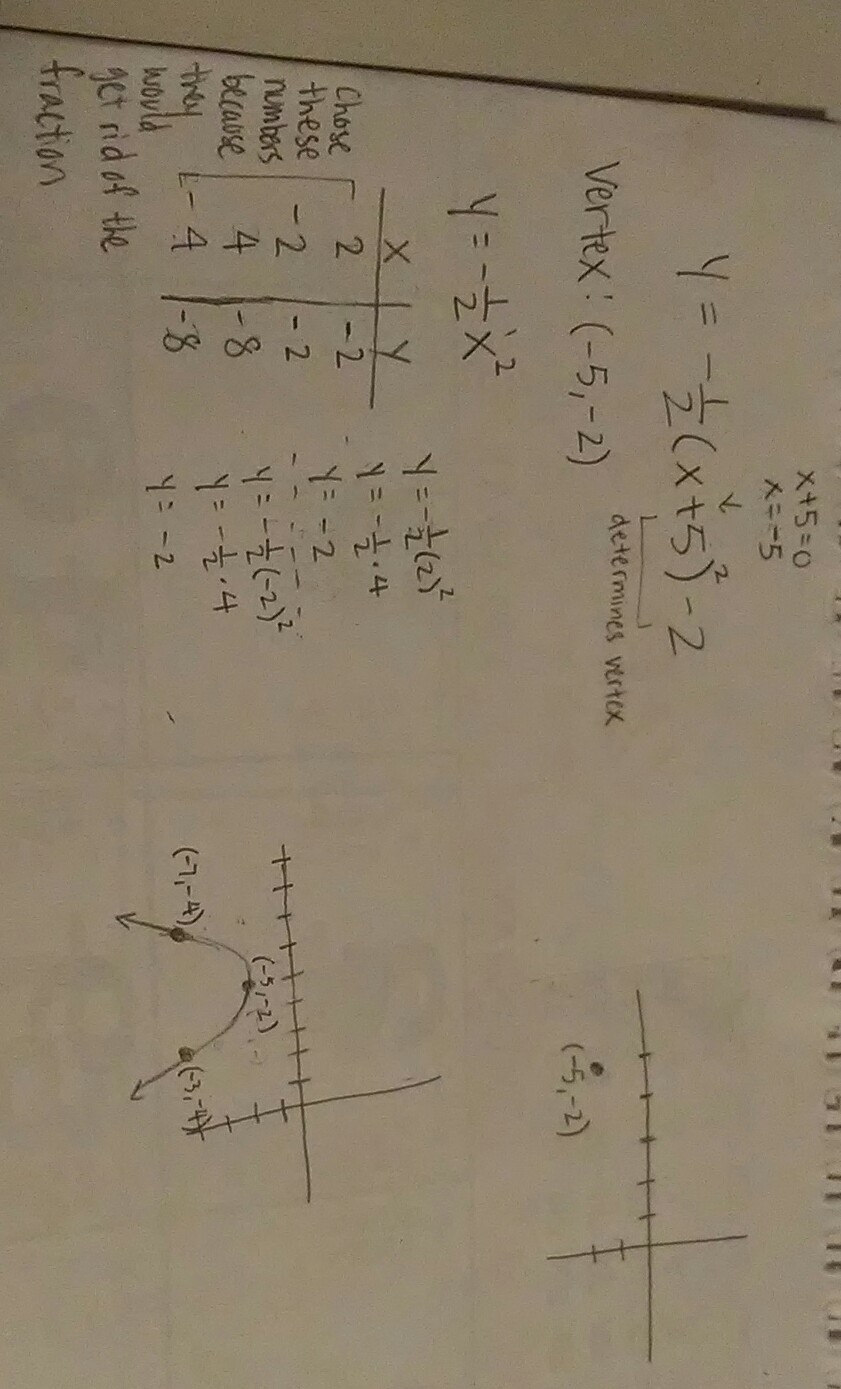 x+5=0
x=-5
y = -1/2(x+5)² - 2
determines vertex
Vertex: (-5,-2)
(-5,-2)
y = -1/2x²
x y
2 -2
-2 -2
4 -8
-4 -8
Chose
these
numbers
because
they
would
get rid of the
fraction
y = -1/2(2)²
y = -1/2·4
y = -2
y = -1/2(-2)²
y = -1/2·4
y = -2
(-5,-2)
(-7,-4)
(-3,-4)